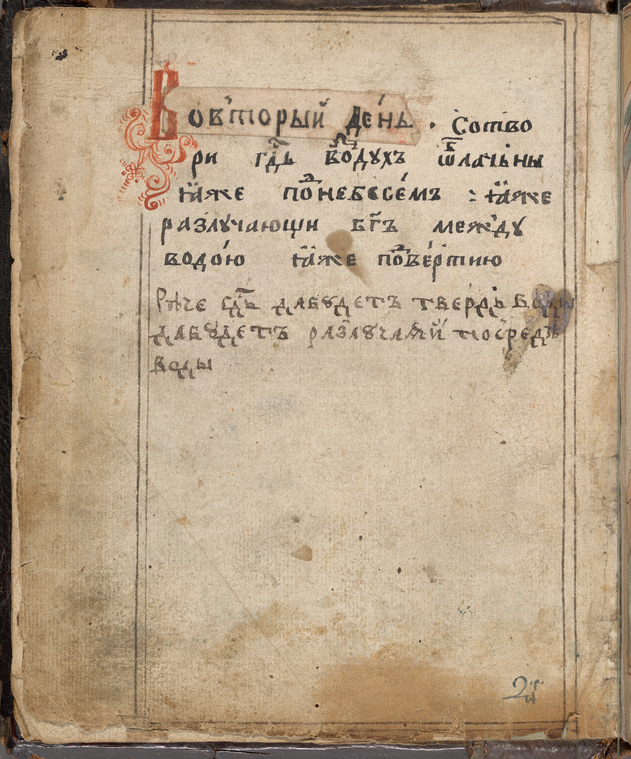 Вовторый день . Сотво
ри гдь воздухъ ѿблачьны
ꙗже поднебесемъ : ꙗже
разлучающи бгъ между
водою ꙗже подвертию
Рече гдь дабудетъ твердь воды
дабудетъ разлучаяй посреде
воды